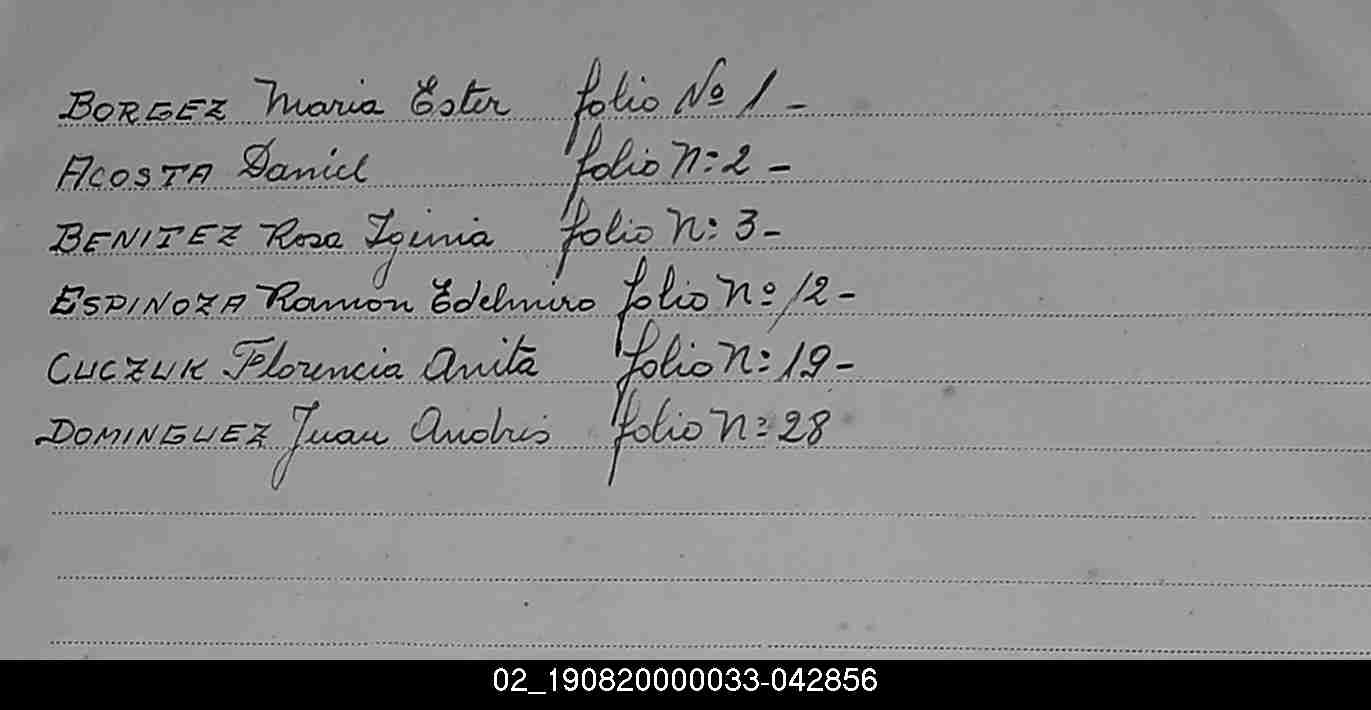 BORGEZ Maria Ester folio Nº 1 -
ACOSTA Daniel folio N: 2 -
BENITEZ Rosa Iginia folio N: 3 -
ESPINOZA Ramon Edelmiro folio Nº 12 -
CUCZUK Florencia Anita folio N: 19 -
DOMINGUEZ Juan Andres folio N: 28
02_190820000033-042856